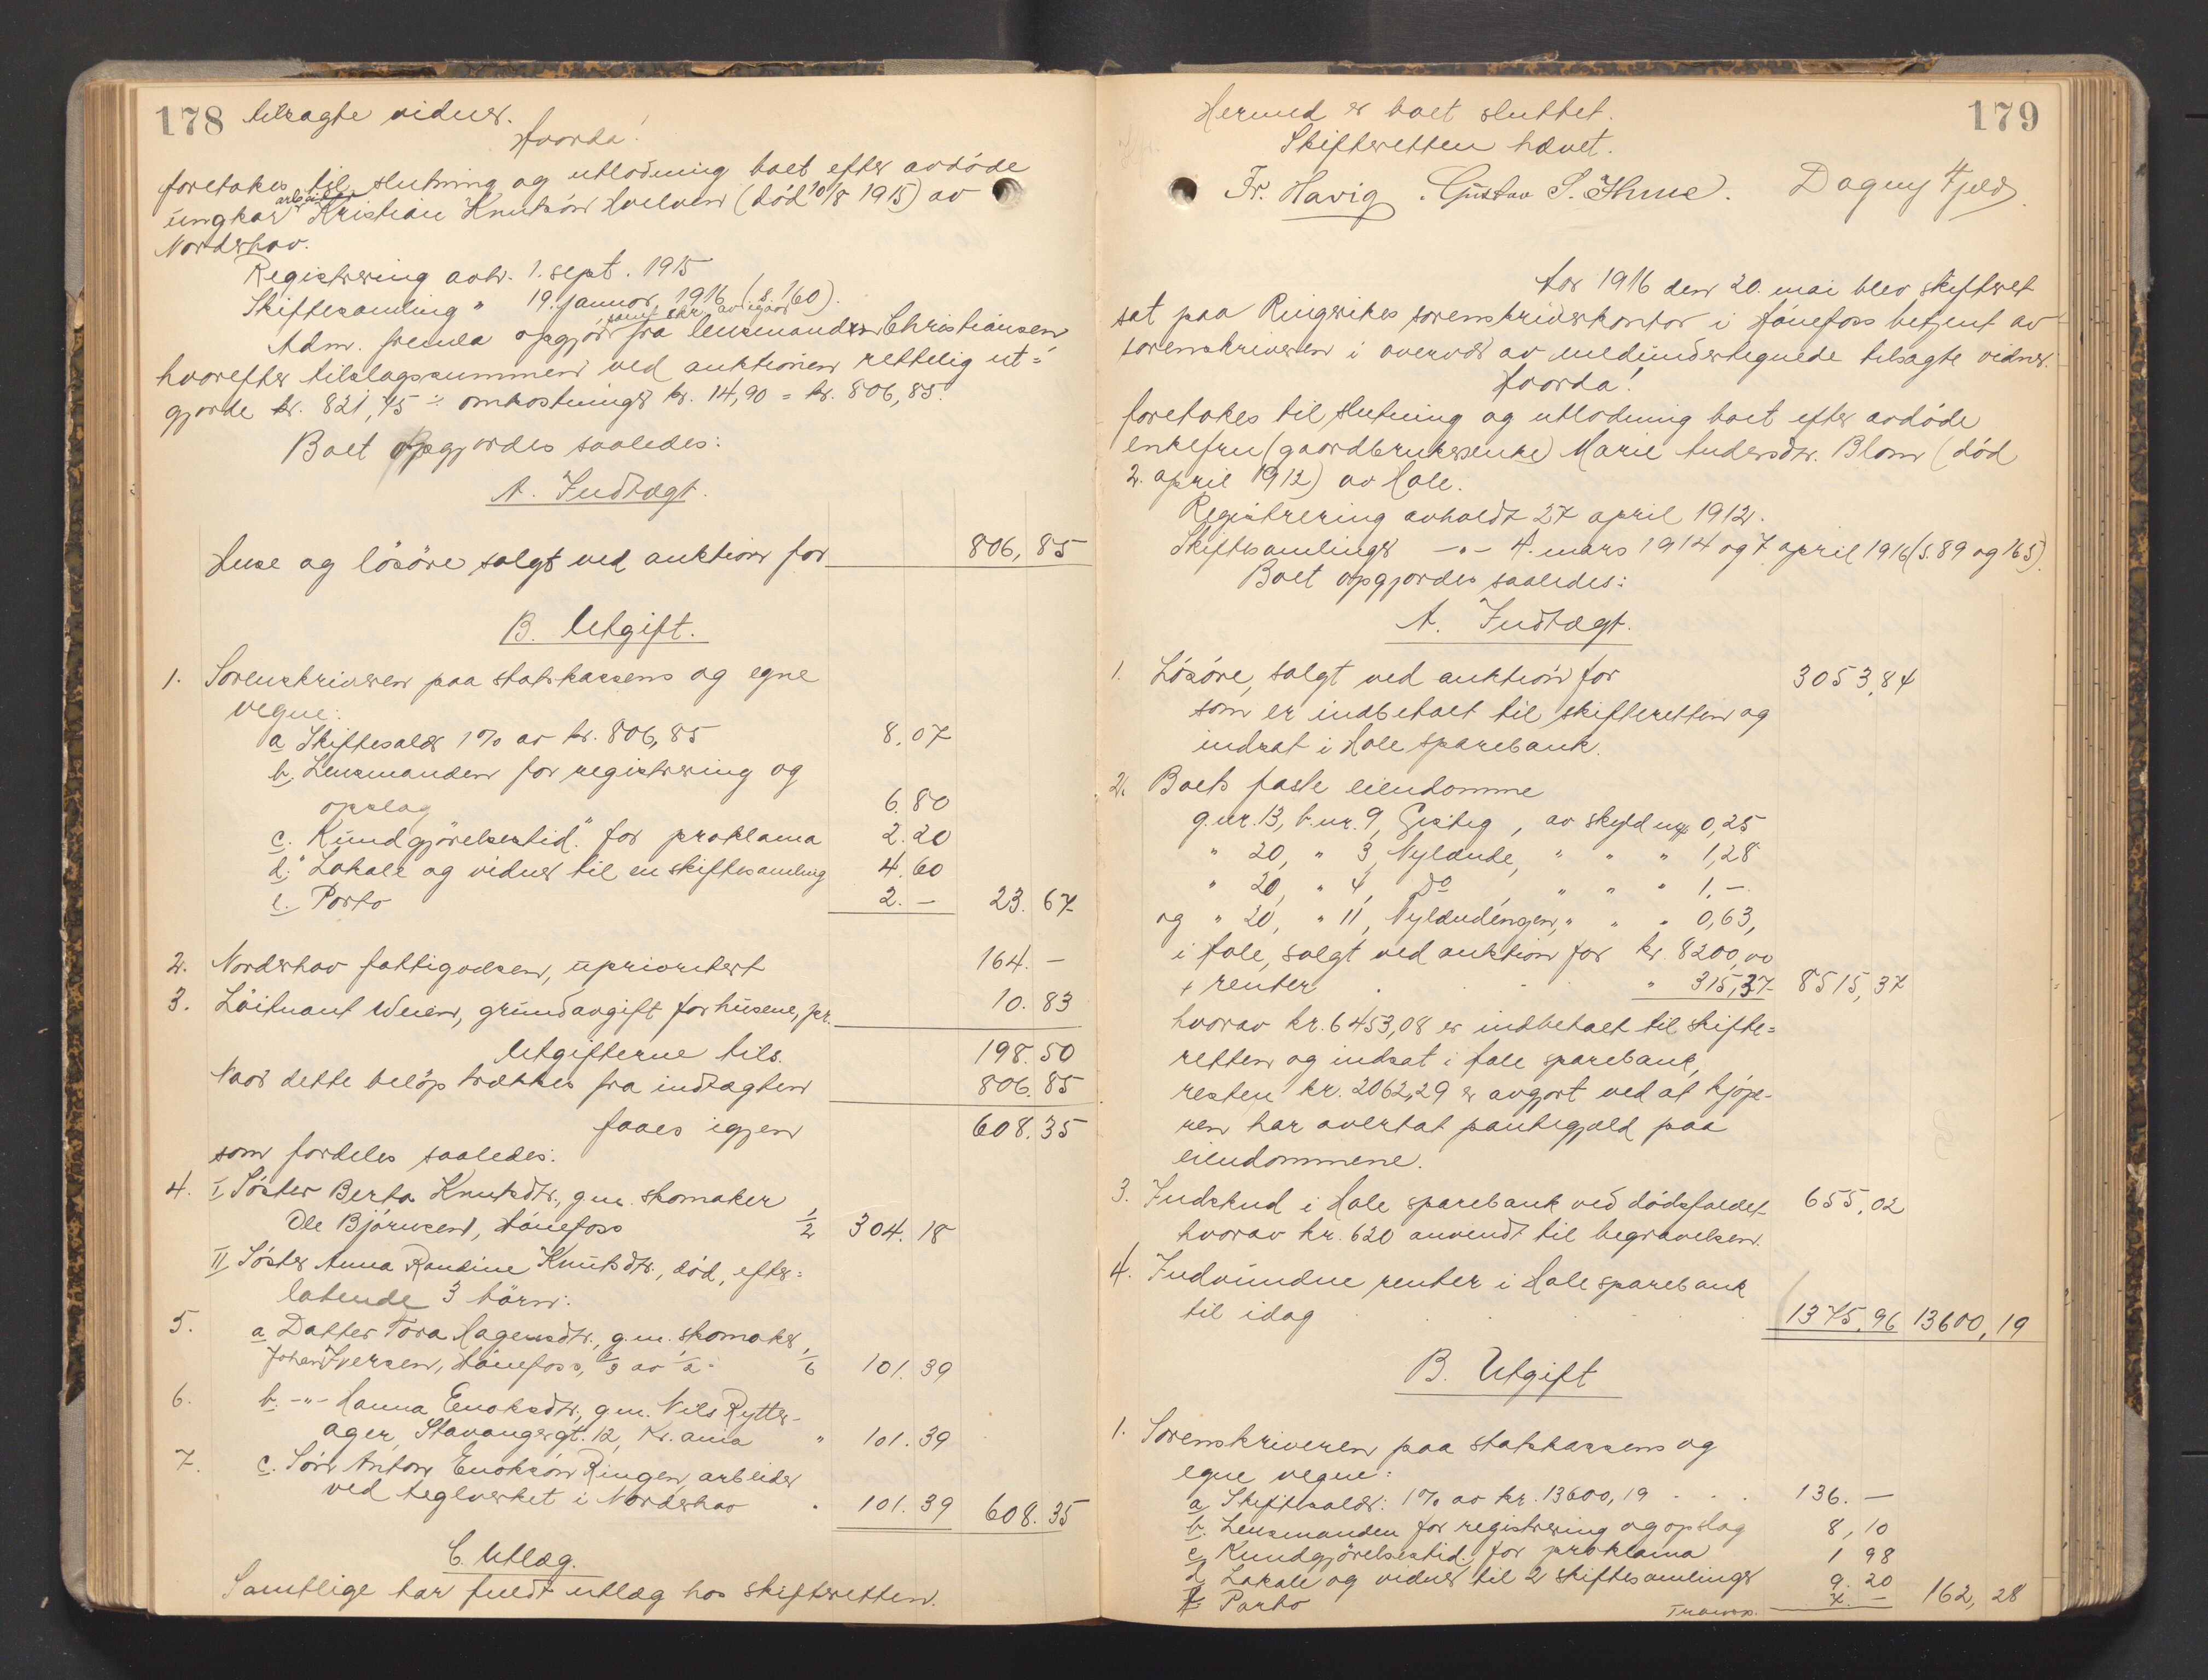 178 tilsagte vidner.
Hvorda!
foretokes til slutning og utlodning boet efter avdöde
ungkar arbeider Kristian Knutsön Hvelven (död 10/8 1915) av
Norderhov.
Registrering avh. 1. sept. 1915
Skiftesamling " 19. januar 1916 (s. 160).
Adm. fremla opgjör samt skr. av igaar fra lensmanden Christiansen
hvorefter tilslagssummen ved auktionen rettelig ut=
gjorde kr. 821,75 ÷ omkostninger kr. 14,90 = kr. 806,85.
Boet opgjordes saaledes:
A. Indtægt.
Huse og lösöre solgt ved auktion for 806,85
B. Utgift.
1. Sorenskriveren paa statskassens og egne
vegne:
a Skiftesalær 1% av kr. 806,85 8.07
b. Lensmanden for registrering og
opslag 6.80
c. "Kundgjörelsestid." for proklama 2.20
d. Lokale og vidner til en skiftesamling 4.60
e. Porto 2.— 23.67
2. Norderhov fattigvæsen, uprioritert 164.—
3. Löitnant Weien, grundavgift for husene, pr. 10.83
Utgifterne tils. 198.50
Naar dette belöp trækkes fra indtægten 806.85
faaes igjen 608.35
som fordeles saaledes:
4. I, Söster Berta Knutsdtr., g.m. skomaker
Ole Björnsen, Hönefoss 1/2 304.18
II, Söster Anna Randine Knutsdtr., död, efter=
latende 3 börn:
5. a Datter Tora Hagensdtr., g.m. skomaker
Johan Iversen, Hönefoss, 1/3 av 1/2 = 1/6 101.39
6. b. -"- Hanna Enoksdtr., g.m. Nils Rytter-
ager, Stavangergt. 12, Kr.ania " 101.39
7. c. Sön Anton Enoksön Ringen, arbeider
ved teglverket i Norderhov " 101.39 608.35
C. Utlæg.
Samtlige har fuldt utlæg hos skifteretten.
179
Hermed er boet sluttet.
Skifteretten hævet.
Fr. Havig. Gustav S. Thune. Dagny Fjeld.
Aar 1916 den 20. mai blev skifteret
sat paa Ringerikes sorenskriverkontor i Hönefoss betjent av
sorenskriveren i overvær av medundertegnede tilsagte vidner.
Hvorda!
foretokes til slutning og utlodning boet efter avdöde
enkefru (gaardbrukerenke) Marie Andersdtr. Blom (död
2. april 1912) av Hole.
Registrering avholdt 27 april 1912.
Skiftesamlinger -"- 4. mars 1914 og 7 april 1916 (s. 89 og 165).
Boet opgjordes saaledes:
A. Indtægt.
1. Lösöre, solgt ved auktion for 3053,84
som er indbetalt til skifteretten og
indsat i Hole sparebank.
2. Boets faste eiendomme
g.nr. 13, b.nr. 9, Gistig, av skyld mrk 0,25
" 20, " 3, Nylænde, " " " 1,28
" 20, " 4, do, " " " 1,-
og " 20, " 11, Nylændengen, " " " 0,63,
i Hole, solgt ved auktion for kr. 8200,00
+ renter " 315,37 8515,37
hvorav kr. 6453,08 er indbetalt til skifte=
retten og indsat i Hole sparebank,
resten kr. 2062,29 er avgjort ved at kjöpe-
ren har overtat pantegjæld paa
eiendommene.
3. Indskud i Hole sparebank ved dödsfaldet 655,02
hvorav kr. 620 anvendt til begravelsen.
4. Indvundne renter i Hole sparebank
til idag 1375,96 13600,19
B. Utgift
1. Sorenskriveren paa statskassens og
egne vegne:
a Skiftesalær: 1% av kr. 13600,19 136.—
b. Lensmanden for registrering og opslag 8,10
c Kundgjörelsestid. for proklama 1 98
d Lokale og vidner til 2 skiftesamlinger 9.20
Porto 7.— 162,28
Transp.